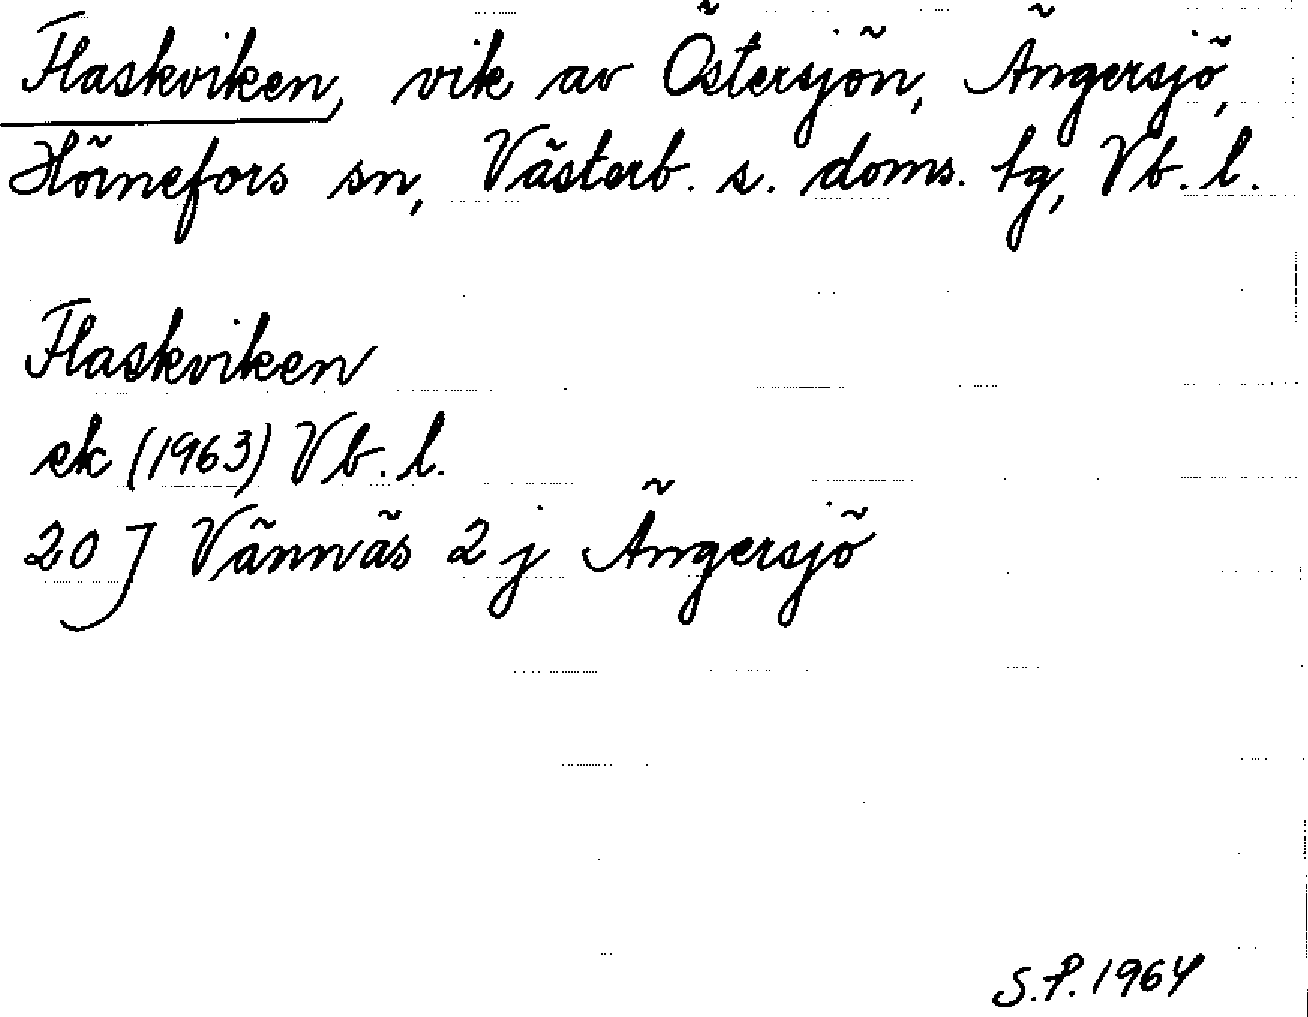 Flaskviken, vik av Östersjön, Ängersjö,
Hörnefors sn, Västerb. s. doms. tg, Vb. l.
Flaskviken
ek (1963) Vb. l.
20 J Vännäs 2 j Ängersjö
S.P. 1964